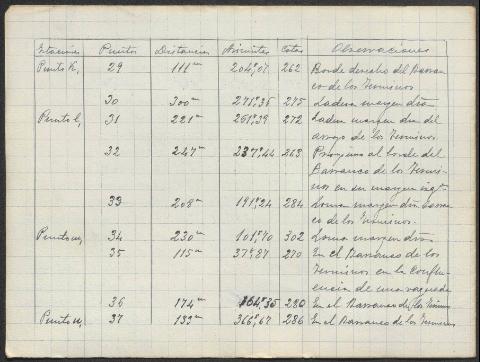 Estaciones Puntos Distancias Azimutes Cotas Observaciones
Punto k, 29 111m 204°,07 262 Borde derecho del Barran-
co de los Terminos
30 300m 271°,35 275 Ladera margen dra.
Punto l, 31 221m 251°,39 272 Ladera margen dra. del
arroyo de los Terminos.
32 247m 237°,44 263 Proximo al borde del
Barranco de los Termi-
nos en su margen izqda.
33 208m 191°,24 284 Loma margen dra. barran-
co de los Terminos.
Punto m, 34 230m 101°,70 302 Loma margen dra.
35 115m 37°,87 270 En el Barranco de los
Terminos en la conflu-
encia de una vaguada
36 174m 364°,35 280 En el Barranco de los Terminos
Punto n, 37 139m 366°,67 286 En el Barranco de los Terminos